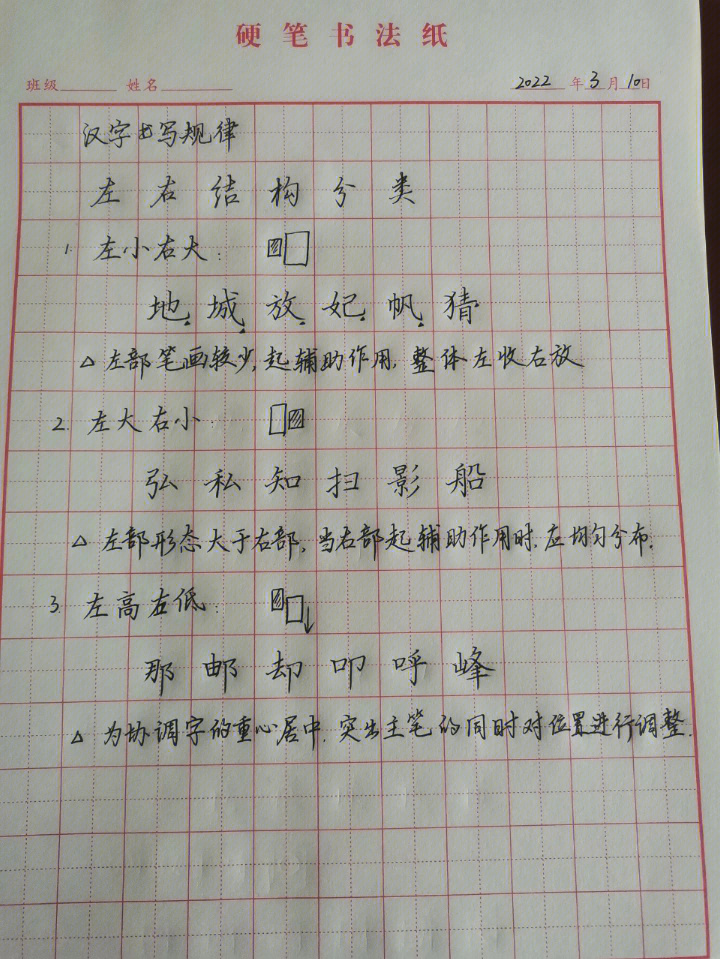 硬笔书法纸
班级 姓名 2022年3月10日
汉字书写规律
左右结构分类
1. 左小右大:
地城放妃帆猜
△左部笔画较少,起辅助作用,整体左收右放
2. 左大右小
弘私知扫影船
△左部形态大于右部,当右部起辅助作用时,应均匀分布.
3. 左高右低:
那邮却叩呼峰
△为协调字的重心居中,突出主笔的同时对位置进行调整.